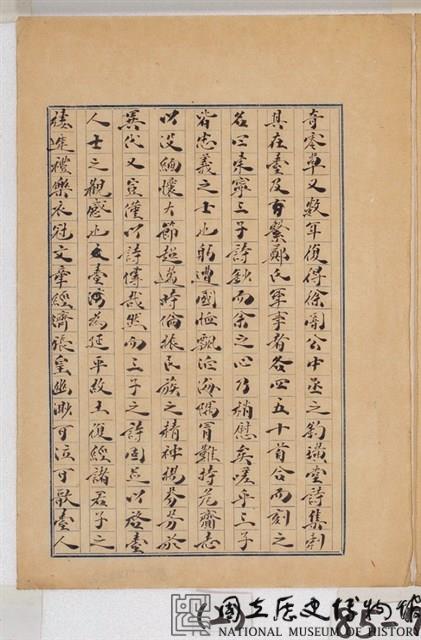 奇零草又數年復得徐闇公中丞之釣璜堂詩集刺
其在臺及有繫鄭氏軍事者各四五十首合而刻之
名曰東寧三子詩鈔而余之心乃稍慰矣嗟乎三子
者忠義之士也躬遭國恤飄泊海隅冒難持危齎志
以沒緬懷大節超邁時倫振民族之精神揚芬芬於
異代又豈僅以詩傳哉然而三子之詩固足以啓臺
人士之觀感也夫臺灣為延平故土復經諸君子之
棲遲禮樂衣冠文章經濟張皇幽渺可泣可歌臺人
國立歷史博物館
NATIONAL MUSEUM OF HISTORY